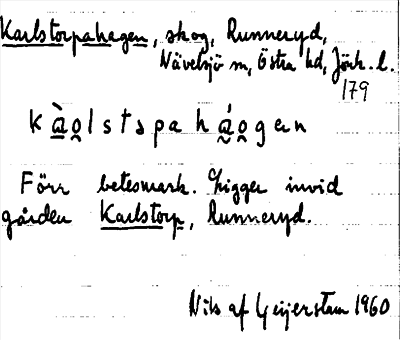 Karlstorpahagen, skog, Runneryd,
Nävelsjö sn, Östra hd, Jönk. l.
179
k à̱o̰lstspa há̰o̰gen
Förr betesmark. Ligger invid
gården Karlstorp, Runneryd.
Nils af Geijerstam 1960